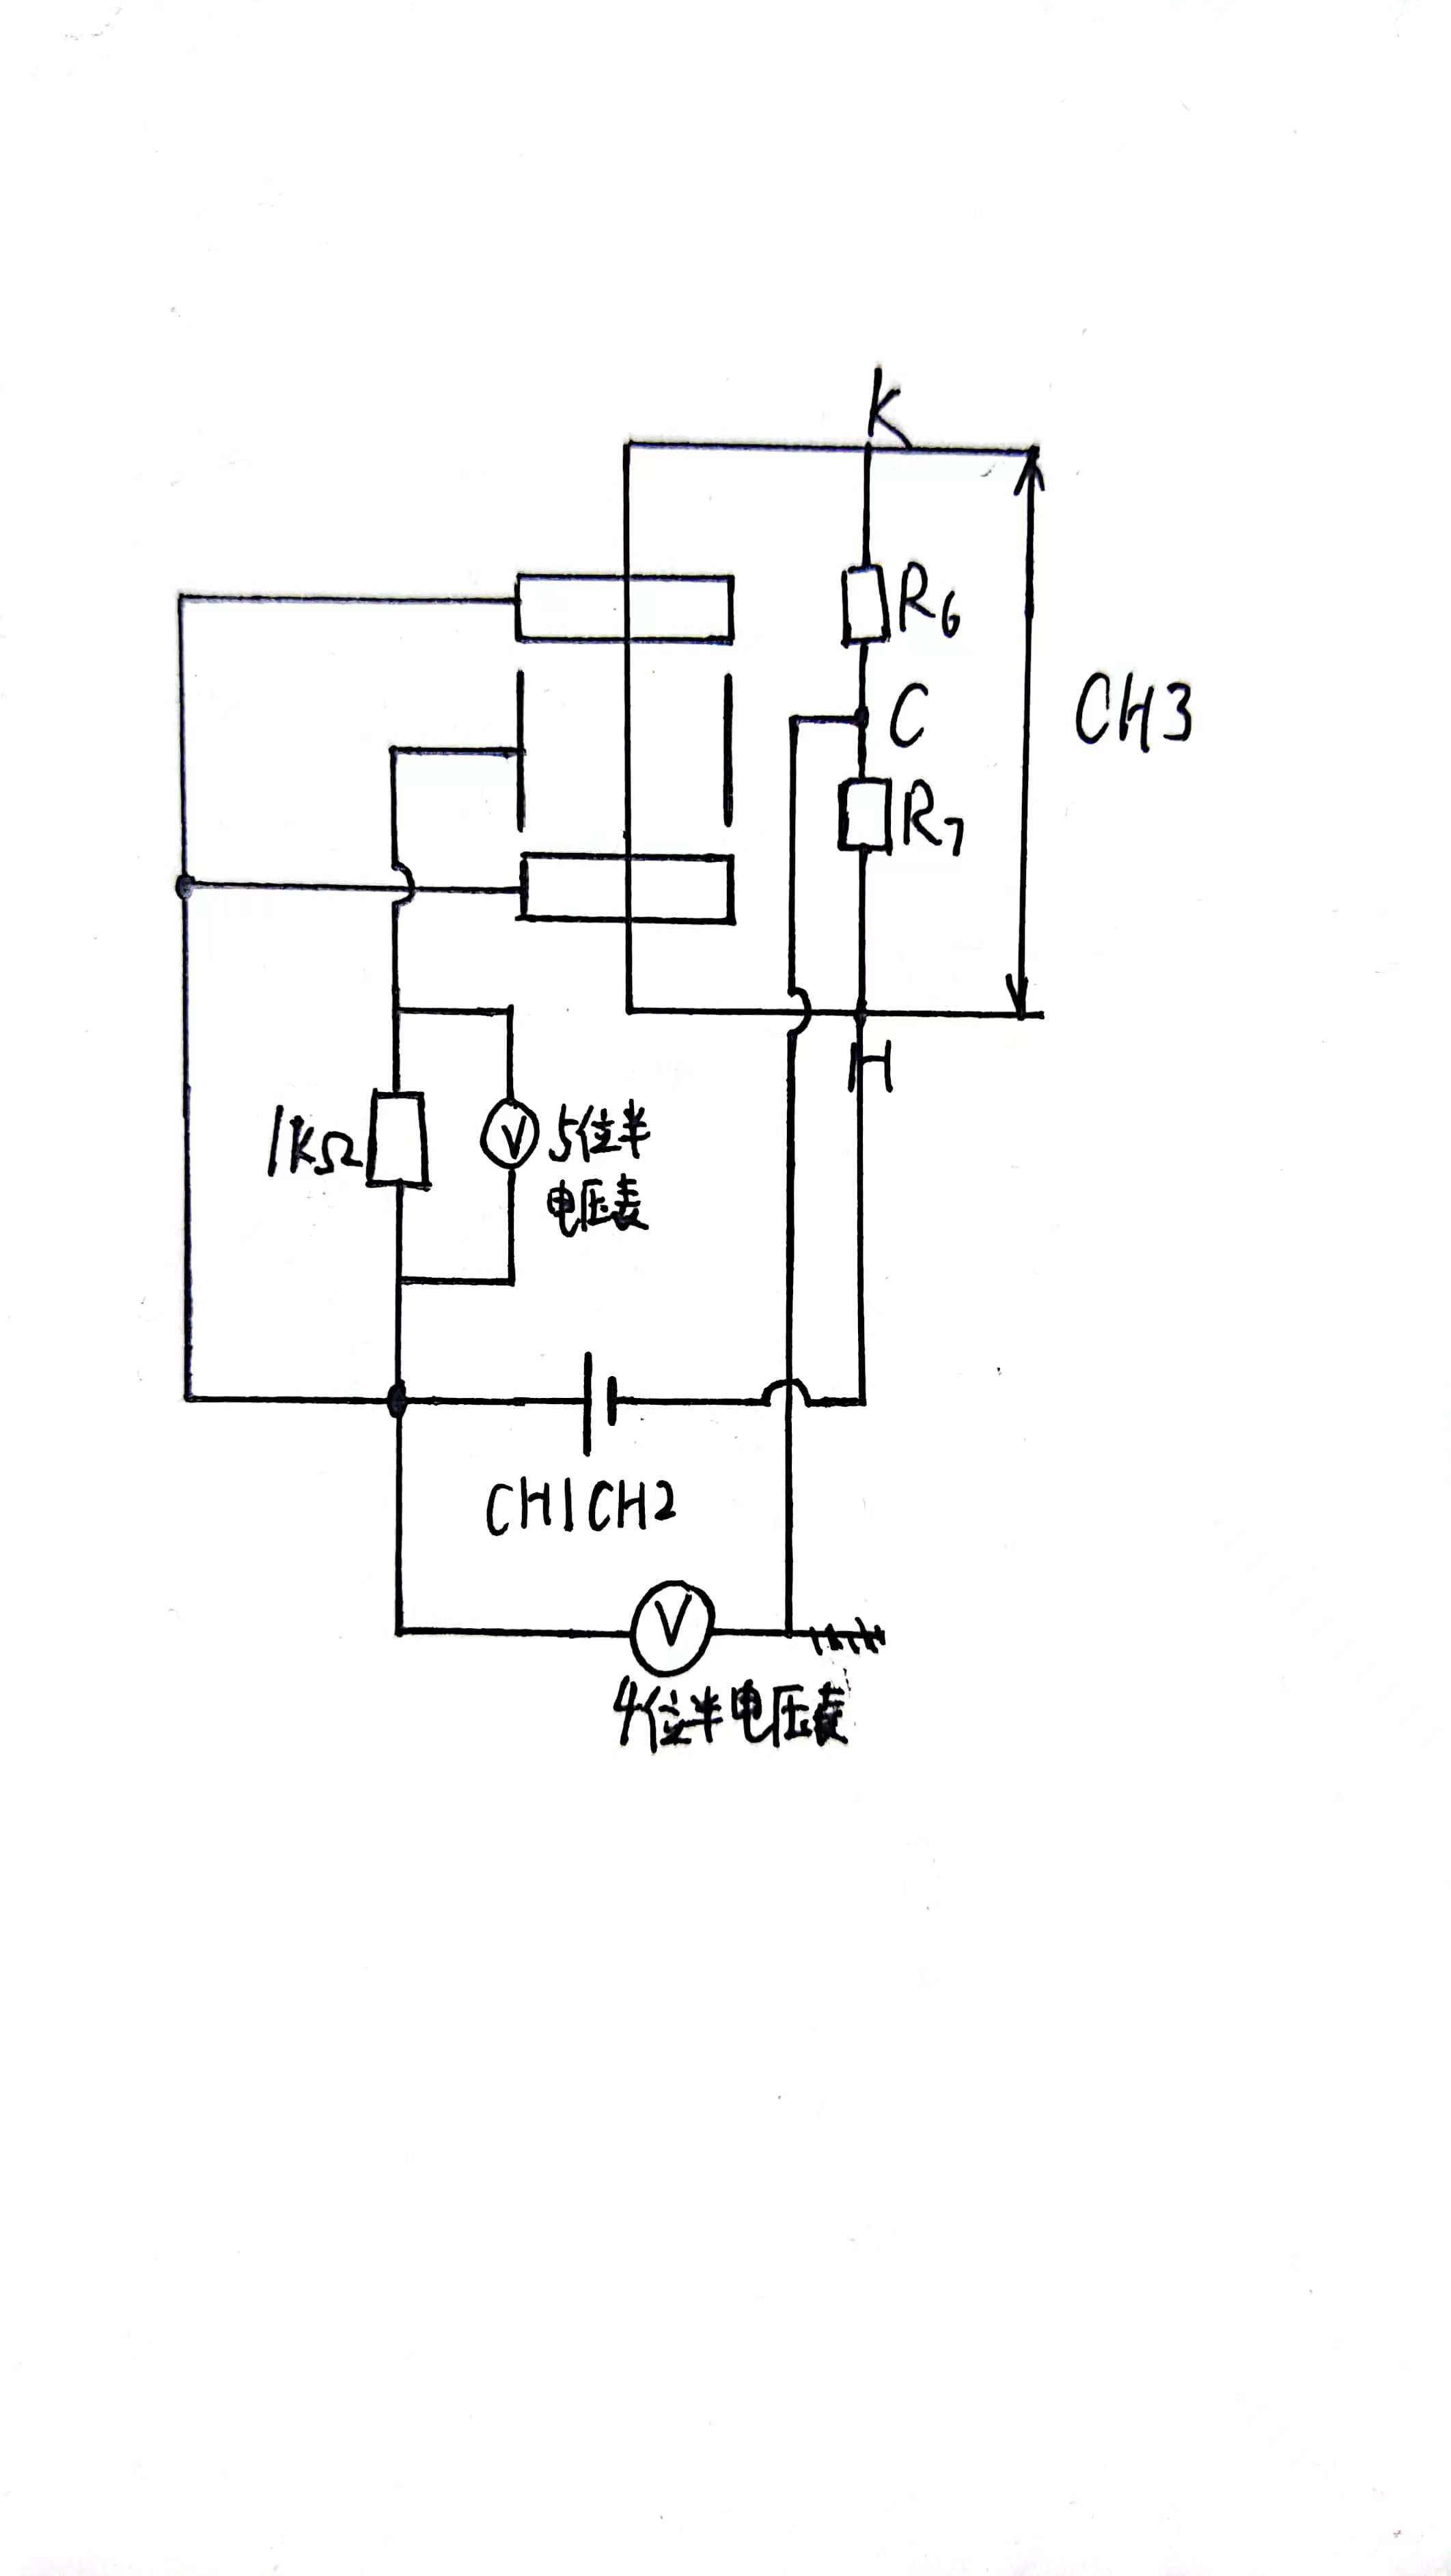 K
R6
C
CH3
R7
H
1KΩ
V
5位半
电压表
CH1CH2
V
4位半电压表